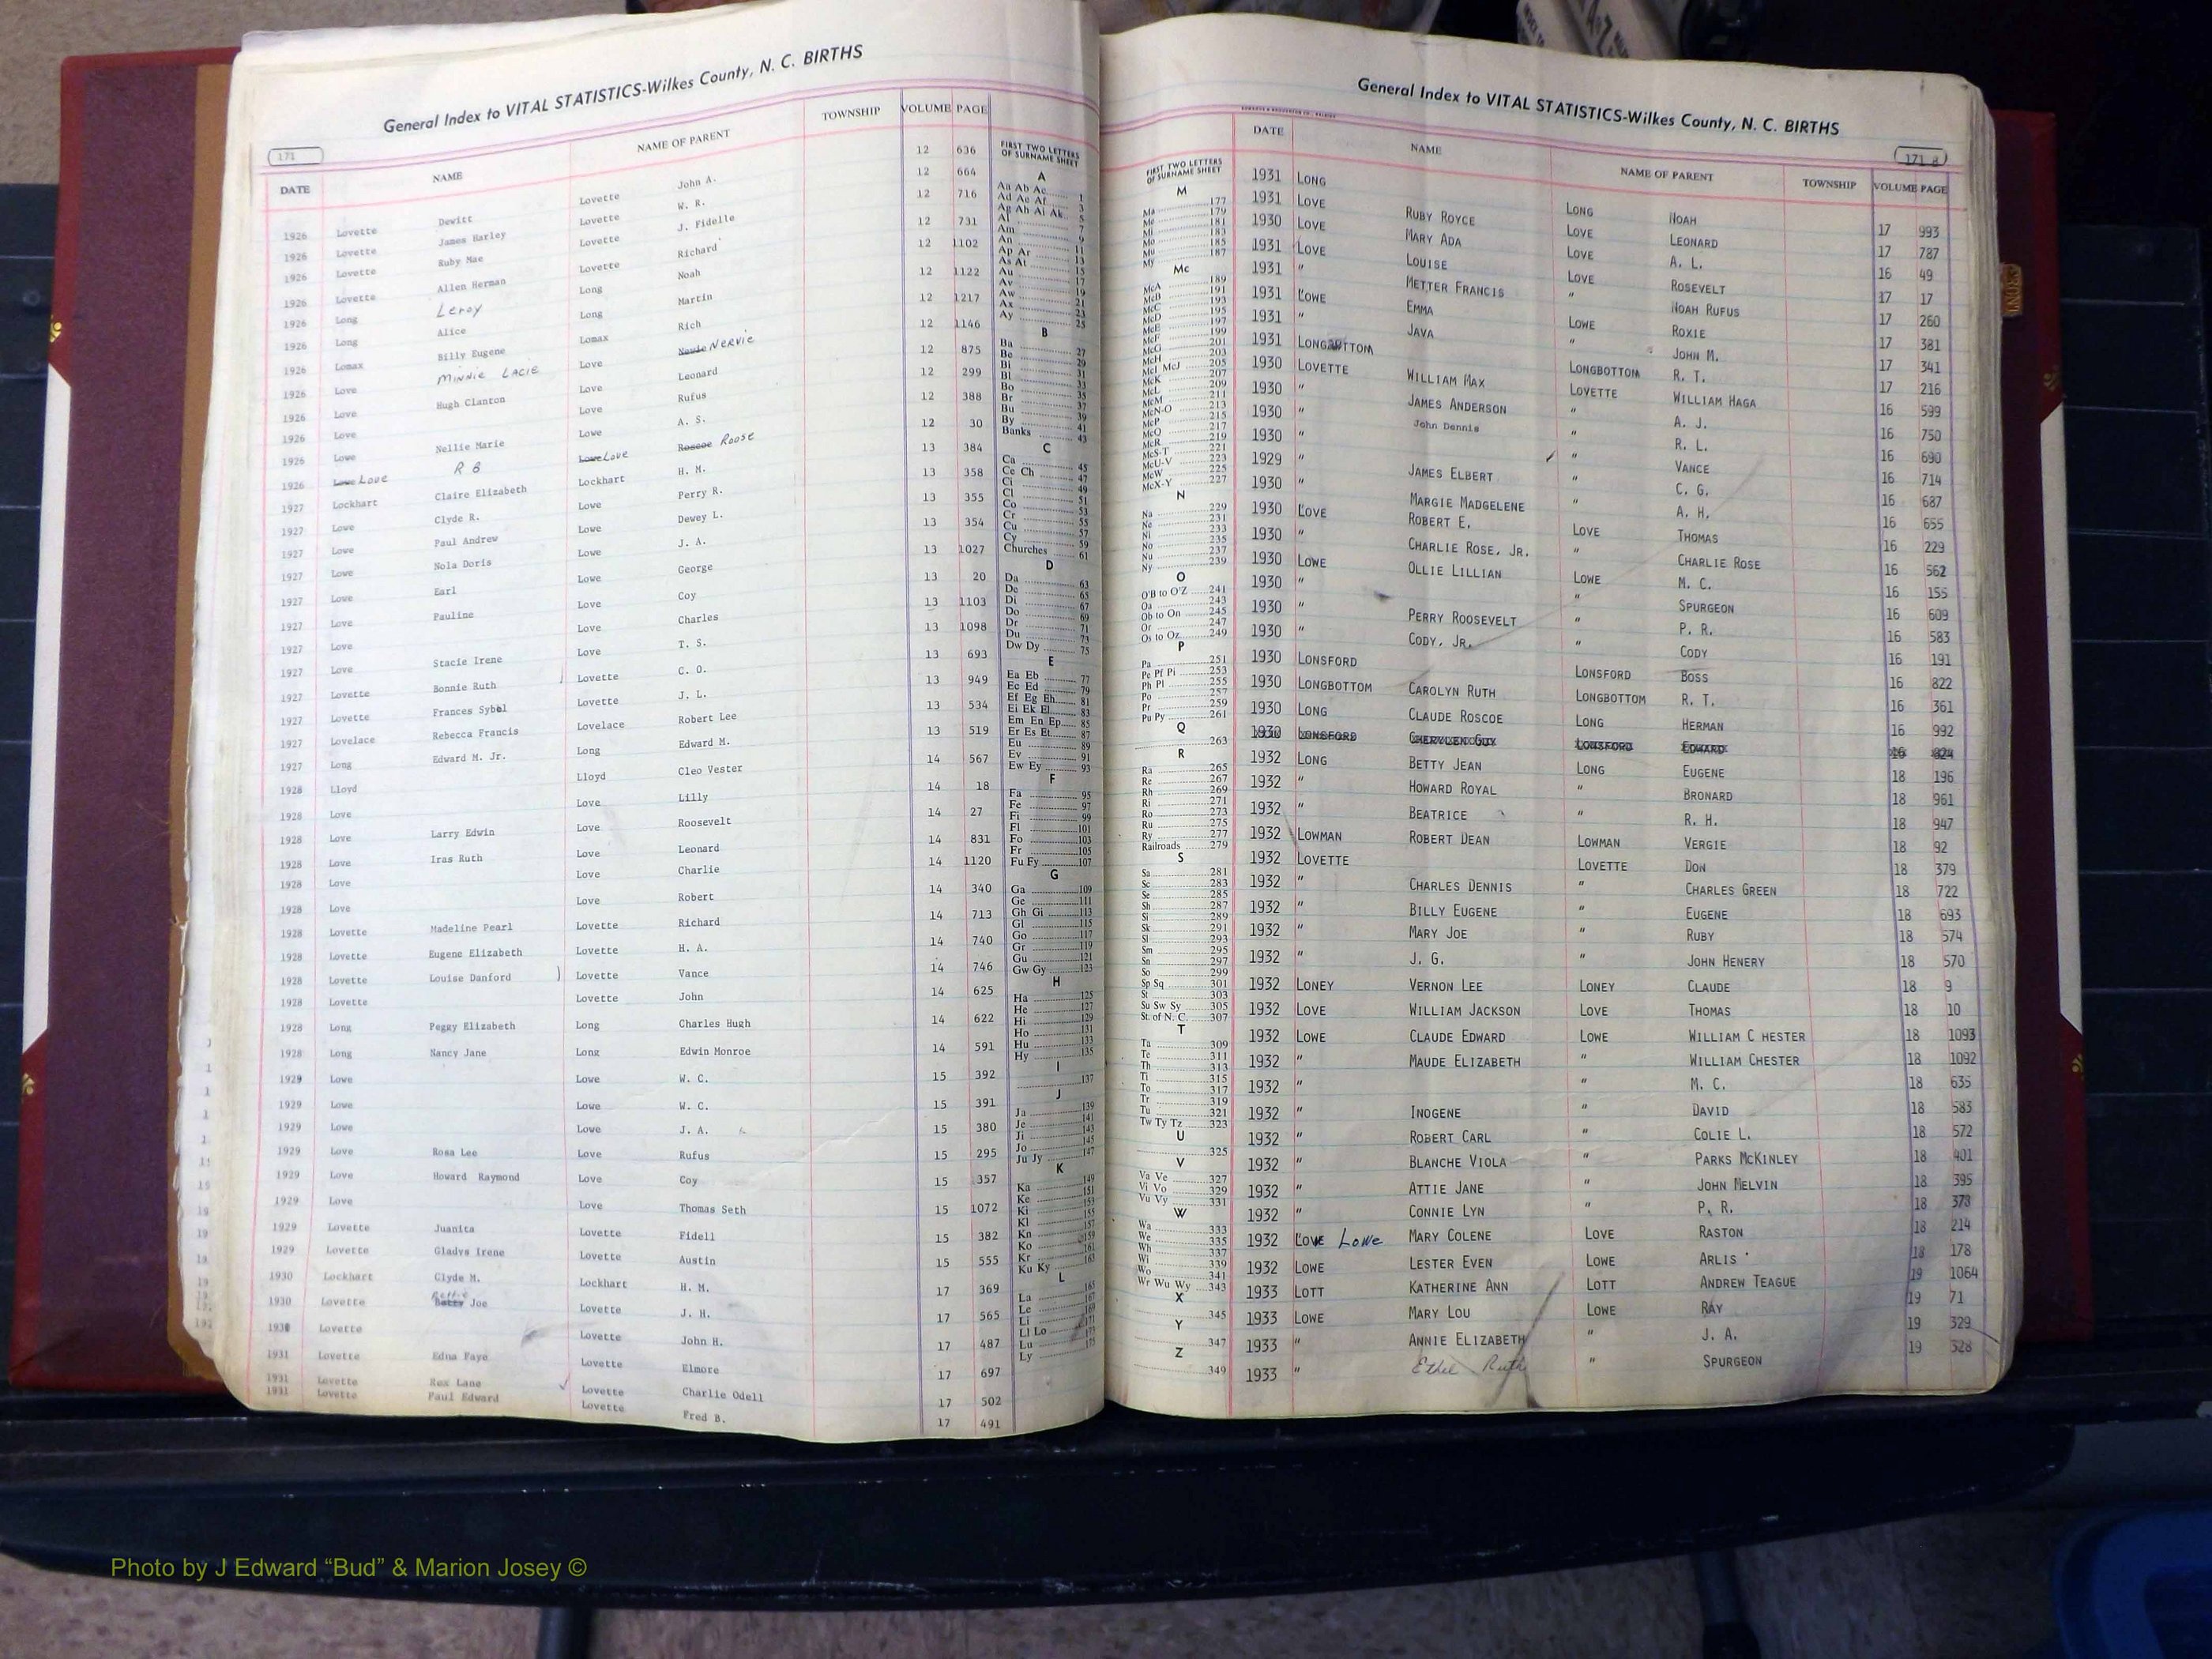 General Index to VITAL STATISTICS-Wilkes County, N. C. BIRTHS
171
DATE NAME NAME OF PARENT TOWNSHIP VOLUME PAGE
1926 Lovette Dewitt Lovette John A. 12 636
1926 Lovette James Harley Lovette W. R. 12 664
1926 Lovette Ruby Mae Lovette J. Fidelle 12 716
1926 Lovette Allen Herman Lovette Richard 12 731
1926 Long Leroy Long Noah 12 1102
1926 Long Alice Long Martin 12 1122
1926 Lomax Billy Eugene Lomax Rich 12 1217
1926 Love MINNIE LACIE Love NERVIE 12 1146
1926 Love Hugh Clanton Love Leonard 12 875
1926 Love Love Rufus 12 299
1926 Lowe Nellie Marie Lowe A. S. 12 388
1926 Lowe Love R B Lowe Love Roscoe Roose 12 30
1927 Lockhart Claire Elizabeth Lockhart H. M. 13 384
1927 Lowe Clyde R. Love Perry R. 13 358
1927 Lowe Paul Andrew Lowe Dewey L. 13 355
1927 Lowe Nola Doris Lowe J. A. 13 354
1927 Lowe Earl Lowe George 13 1027
1927 Love Pauline Love Coy 13 20
1927 Love Love Charles 13 1103
1927 Love Stacie Irene Love T. S. 13 1098
1927 Lovette Bonnie Ruth Lovette C. O. 13 693
1927 Lovette Frances Sybel Lovette J. L. 13 949
1927 Lovelace Rebecca Francis Lovelace Robert Lee 13 534
1927 Long Edward M. Jr. Long Edward M. 13 519
1928 Lloyd Lloyd Cleo Vester 14 567
1928 Love Love Lilly 14 18
1928 Love Larry Edwin Love Roosevelt 14 27
1928 Love Iras Ruth Love Leonard 14 831
1928 Love Love Charlie 14 1120
1928 Love Love Robert 14 340
1928 Lovette Madeline Pearl Lovette Richard 14 713
1928 Lovette Eugene Elizabeth Lovette H. A. 14 740
1928 Lovette Louise Danford Lovette Vance 14 746
1928 Lovette Lovette John 14 625
1928 Long Peggy Elizabeth Long Charles Hugh 14 622
1928 Long Nancy Jane Long Edwin Monroe 14 591
1929 Lowe Lowe W. C. 15 392
1929 Lowe Lowe W. C. 15 391
1929 Lowe Lowe J. A. 15 380
1929 Love Rosa Lee Love Rufus 15 295
1929 Love Howard Raymond Love Coy 15 357
1929 Love Love Thomas Seth 15 1072
1929 Lovette Juanita Lovette Fidell 15 382
1929 Lovette Gladys Irene Lovette Austin 15 555
1930 Lockhart Clyde M. Lockhart H. M. 17 369
1930 Lovette Betty Bettie Joe Lovette J. H. 17 565
1930 Lovette Lovette John H. 17 487
1931 Lovette Edna Faye Lovette Elmore 17 697
1931 Lovette Rex Lane Lovette Charlie Odell 17 502
1931 Lovette Paul Edward Lovette Fred B. 17 491
FIRST TWO LETTERS
OF SURNAME SHEET
A
Aa Ab Ac 1
Ad Ae Af 3
Ag Ah Ai Ak 5
Al 7
Am 9
An 11
Ap Ar 13
As At 15
Au 17
Av 19
Aw 21
Ax 23
Ay 25
B
Ba 27
Be 29
Bi 31
Bl 33
Bo 35
Br 37
Bu 39
By 41
Banks 43
C
Ca 45
Ce Ch 47
Ci 49
Cl 51
Co 53
Cr 55
Cu 57
Cy 59
Churches 61
D
Da 63
De 65
Di 67
Do 69
Dr 71
Du 73
Dw Dy 75
E
Ea Eb 77
Ec Ed 79
Ef Eg Eh 81
Ei Ek El 83
Em En Ep 85
Er Es Et 87
Eu 89
Ev 91
Ew Ey 93
F
Fa 95
Fe 97
Fi 99
Fl 101
Fo 103
Fr 105
Fu Fy 107
G
Ga 109
Ge 111
Gh Gi 113
Gl 115
Go 117
Gr 119
Gu 121
Gw Gy 123
H
Ha 125
He 127
Hi 129
Ho 131
Hu 133
Hy 135
I
137
J
Ja 139
Je 141
Ji 143
Jo 145
Ju Jy 147
K
Ka 149
Ke 151
Ki 153
Kl 155
Kn 157
Ko 159
Kr 161
Ku Ky 163
L
La 165
Le 167
Li 169
Ll Lo 171
Lu 173
Ly 175
General Index to VITAL STATISTICS-Wilkes County, N. C. BIRTHS
171 a
FIRST TWO LETTERS
OF SURNAME SHEET
M
Ma 177
Me 179
Mi 181
Mo 183
Mu 185
My 187
Mc
McA 189
McB 191
McC 193
McD 195
McE 197
McF 199
McG 201
McH 203
McI McJ 205
McK 207
McL 209
McM 211
McN-O 213
McP 215
McQ 217
McR 219
McS-T 221
McU-V 223
McW 225
McX-Y 227
N
Na 229
Ne 231
Ni 233
No 235
Nu 237
Ny 239
O
O'B to O'Z 241
Oa 243
Ob to On 245
Or 247
Os to Oz 249
P
Pa 251
Pe Pf Pi 253
Ph Pl 255
Po 257
Pr 259
Pu Py 261
Q
263
R
Ra 265
Re 267
Rh 269
Ri 271
Ro 273
Ru 275
Ry 277
Railroads 279
S
Sa 281
Sc 283
Se 285
Sh 287
Si 289
Sk 291
Sl 293
Sm 295
Sn 297
So 299
Sp Sq 301
St 303
Su Sw Sy 305
St. of N. C. 307
T
Ta 309
Te 311
Th 313
Ti 315
To 317
Tr 319
Tu 321
Tw Ty Tz 323
U
325
V
Va Ve 327
Vi Vo 329
Vu Vy 331
W
Wa 333
We 335
Wh 337
Wi 339
Wo 341
Wr Wu Wy 343
X
345
Y
347
Z
349
DATE NAME NAME OF PARENT TOWNSHIP VOLUME PAGE
1931 LONG LONG NOAH 17 993
1931 LOVE RUBY ROYCE LOVE LEONARD 17 787
1930 LOVE MARY ADA LOVE A. L. 16 49
1931 LOVE LOUISE LOVE ROSEVELT 17 17
1931 " METTER FRANCIS " NOAH RUFUS 17 260
1931 LOWE EMMA LOWE ROXIE 17 381
1931 " JAVA " JOHN M. 17 341
1931 LONGBOTTOM LONGBOTTOM R. T. 17 216
1930 LOVETTE WILLIAM MAX LOVETTE WILLIAM HAGA 16 599
1930 " JAMES ANDERSON " A. J. 16 750
1930 " John Dennis " R. L. 16 690
1930 " " VANCE 16 714
1929 " JAMES ELBERT " C. G. 16 687
1930 " MARGIE MADGELENE " A. H. 16 655
1930 LOVE ROBERT E. LOVE THOMAS 16 229
1930 " CHARLIE ROSE, JR. " CHARLIE ROSE 16 562
1930 LOWE OLLIE LILLIAN LOWE M. C. 16 155
1930 " " SPURGEON 16 609
1930 " PERRY ROOSEVELT " P. R. 16 583
1930 " CODY, JR. " CODY 16 191
1930 LONSFORD LONSFORD BOSS 16 822
1930 LONGBOTTOM CAROLYN RUTH LONGBOTTOM R. T. 16 361
1930 LONG CLAUDE ROSCOE LONG HERMAN 16 992
1930 LONSFORD LONSFORD EDWARD 16 824
1932 LONG BETTY JEAN LONG EUGENE 18 196
1932 " HOWARD ROYAL " BRONARD 18 961
1932 " BEATRICE " R. H. 18 947
1932 LOWMAN ROBERT DEAN LOWMAN VERGIE 18 92
1932 LOVETTE LOVETTE DON 18 379
1932 " CHARLES DENNIS " CHARLES GREEN 18 722
1932 " BILLY EUGENE " EUGENE 18 693
1932 " MARY JOE " RUBY 18 574
1932 " J. G. " JOHN HENERY 18 570
1932 LONEY VERNON LEE LONEY CLAUDE 18 9
1932 LOVE WILLIAM JACKSON LOVE THOMAS 18 10
1932 LOWE CLAUDE EDWARD LOWE WILLIAM C HESTER 18 1093
1932 " MAUDE ELIZABETH " WILLIAM CHESTER 18 1092
1932 " M. C. 18 635
1932 " INOGENE " DAVID 18 583
1932 " ROBERT CARL " COLIE L. 18 572
1932 " BLANCHE VIOLA " PARKS MCKINLEY 18 401
1932 " ATTIE JANE " JOHN MELVIN 18 395
1932 " CONNIE LYN " P. R. 18 373
1932 LOVE Lowe MARY COLENE LOVE RASTON 18 214
1932 LOWE LESTER EVEN LOWE ARLIS 18 178
1933 LOTT KATHERINE ANN LOTT ANDREW TEAGUE 19 1064
1933 LOWE MARY LOU LOWE RAY 19 71
1933 " ANNIE ELIZABETH " J. A. 19 329
1933 " Ethel Ruth " SPURGEON 19 528
INDEX
Photo by J Edward “Bud” & Marion Josey ©